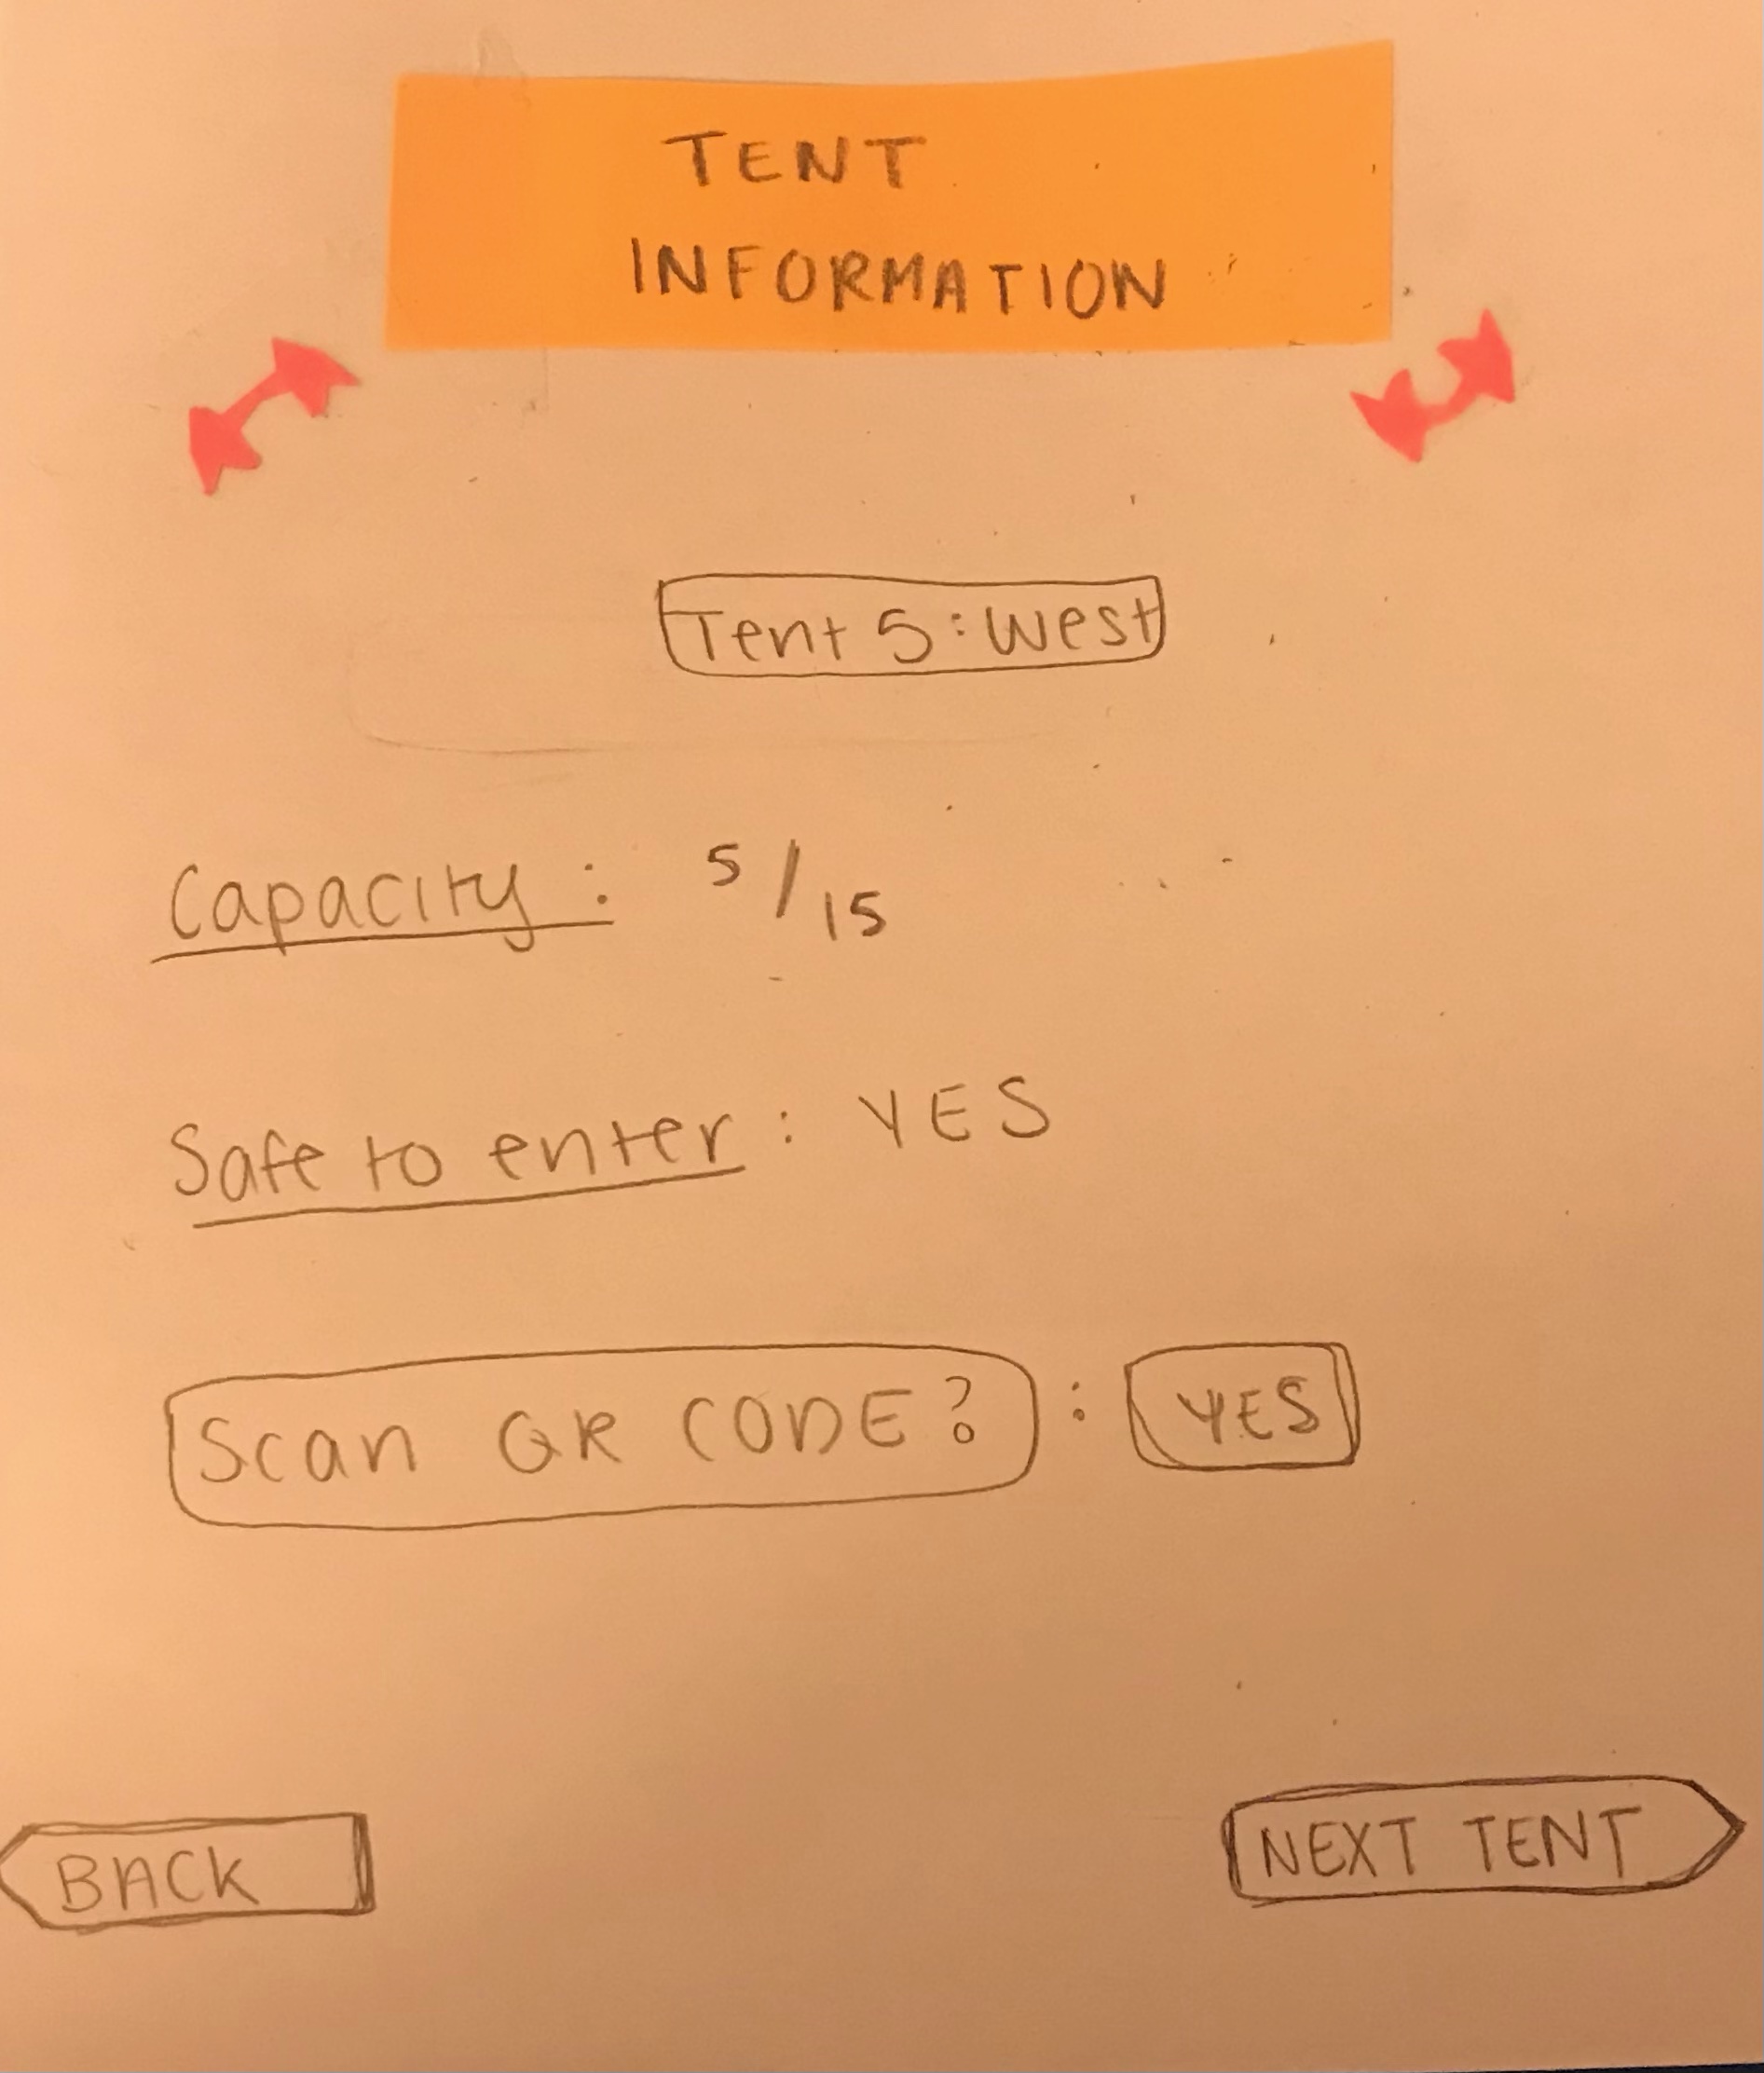 TENT
INFORMATION
Tent 5: West
Capacity: 5/15
Safe to enter: YES
Scan QR CODE? : YES
BACK
NEXT TENT